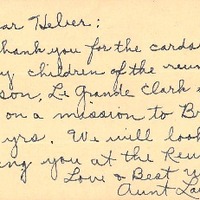 ar Heber:
hank you for the cards
y children of the reun
son, Le Grande Clark
on a mission to Br
yrs. We will look
ing you at the Reu
Love & Best
Aunt La